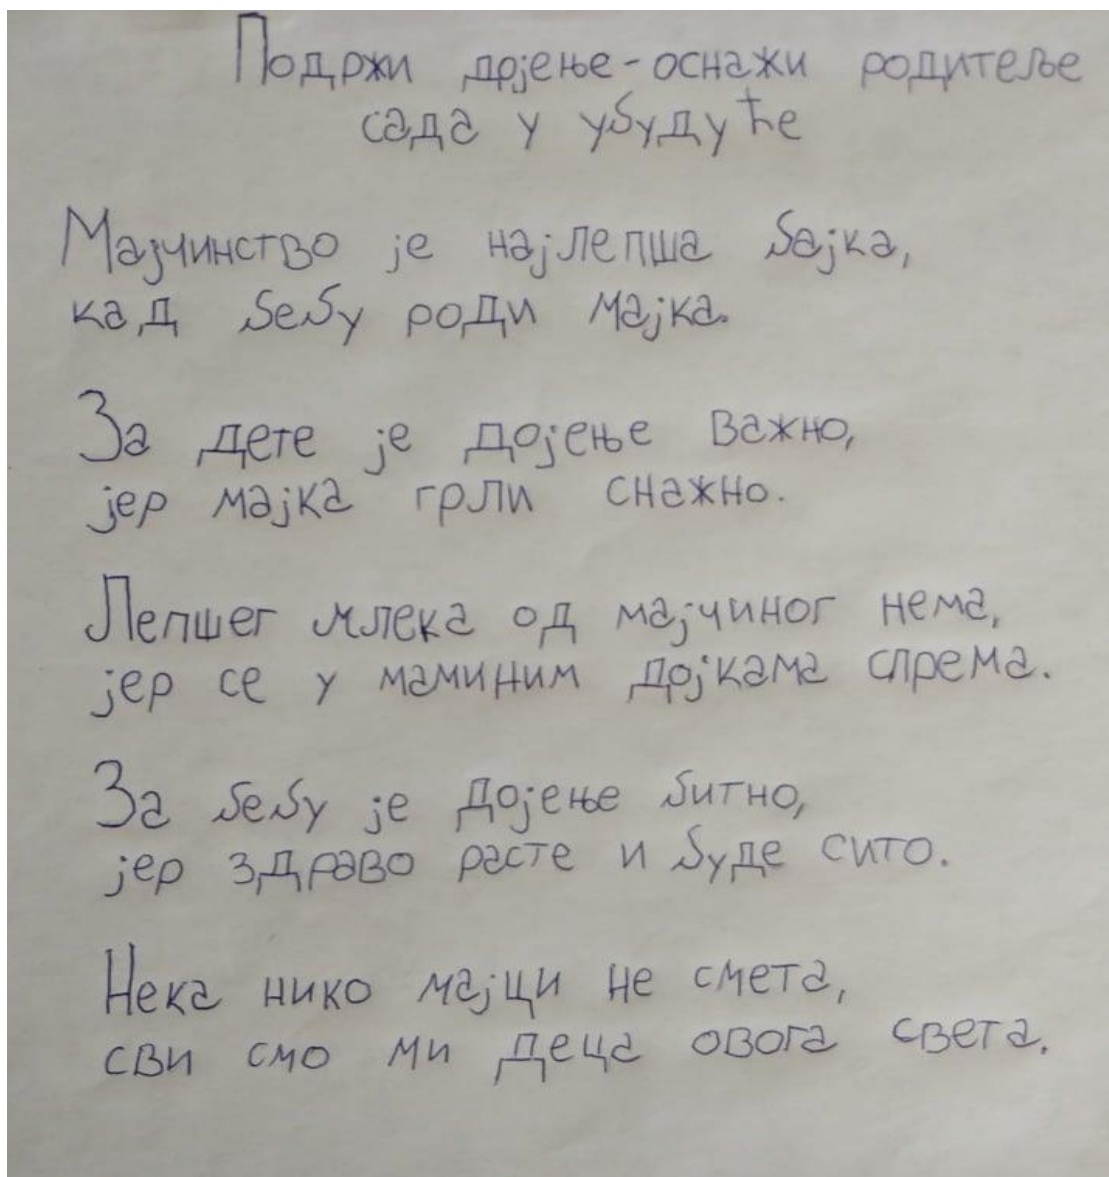 Подржи дојење-оснажи родитеље
сада у убудуће
Мајчинство је најлепша бајка,
кад бебу роди мајка.
За дете је дојење важно,
јер мајка грли снажно.
Лепшег млека од мајчиног нема,
јер се у маминим дојкама спрема.
За бебу је дојење битно,
јер здраво расте и буде сито.
Нека нико мајци не смета,
сви смо ми деца овога света.